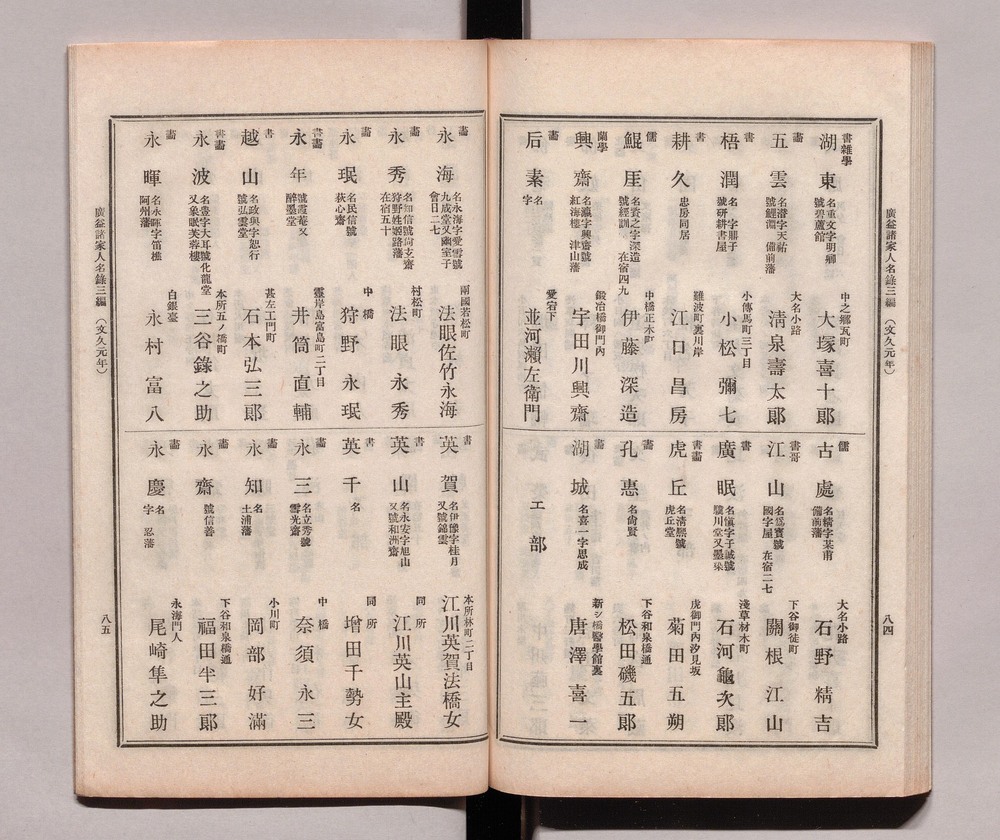 廣益諸家人名錄三編 (文久元年)
八四
書雜學 湖東 名重文字明卿 號碧蘆館 中之鄉瓦町 大塚喜十郎
畵 五雲 名潜字天祐 號鯉淵 備前藩 大名小路 淸泉壽太郎
書 梧潤 名 字 號硏耕書屋 小傳馬町三丁目 小松彌七
書 耕久 忠房同居 難波町裏川岸 江口昌房
儒 鯤厓 名資之字深造 號經訓 在宿四九 中橋正木町 伊藤深造
蘭學 興齋 名瀛字興齋號 紅海樓 津山藩 鍛冶橋御門內 宇田川興齋
畵 后素 名 字 愛宕下 並河瀨左衛門
儒 古處 名精字某甫 備前藩 大名小路 石野精吉
書哥 江山 名爲寶號 國字屋 在宿二七 下谷御徒町 關根江山
書 廣眠 名愼字子誠號 驥川堂又墨柒 淺草材木町 石河龜次郎
書畵 虎丘 名淸熙號 虎丘堂 虎御門內汐見坂 菊田五朔
畵 孔惠 名尙賢 下谷和泉橋通 松田磯五郎
畵 湖城 名喜一字思成 新シ橋醫學館裏 唐澤喜一
エ部
畵 永海 名永海字愛雪號 九成堂又幽室子 會日二七 兩國若松町 法眼佐竹永海
畵 永秀 名知信號尙玄齋 狩野姓姬路藩 在宿五十 村松町 法眼永秀
畵 永珉 名民信號 荻心齋 中橋 狩野永珉
書畵 永年 號霞菴又 醉墨堂 靈岸島富島町二丁目 井筒直輔
書 越山 名政與字恕行 號弘雲堂 甚左エ門町 石本弘三郎
書畵 永波 名豊字大耳號化龍堂 又象眠芙蓉樓 本所五ノ橋町 三谷錄之助
畵 永暉 名永暉字笛樵 阿州藩 白銀臺 永村富八
書 英賀 名伊豫字桂月 又號錦雲 本所林町二丁目 江川英賀法橋女
書 英山 名永安字旭山 又號和洲齋 同所 江川英山主殿
書 英千 名 同所 增田千勢女
畵 永三 名立秀號 雪光齋 中橋 奈須永三
畵 永知 名 土浦藩 小川町 岡部好滿
畵 永齋 號信善 下谷和泉橋通 福田半三郎
畵 永慶 名 字 忍藩 永海門人 尾崎隼之助
廣益諸家人名錄三編 (文久元年)
八五